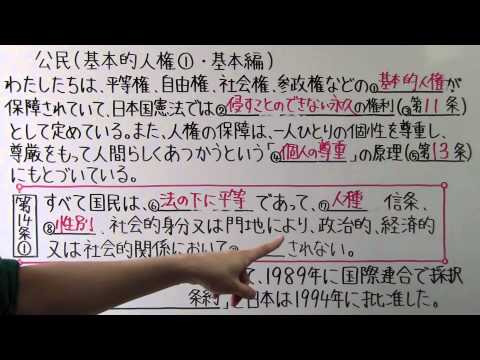 公民(基本的人権①・基本編)
わたしたちは、平等権、自由権、社会権、参政権などの①基本的人権が
保障されていて、日本国憲法では②侵すことのできない永久の権利(③第11条)
として定めている。また、人権の保障は、一人ひとりの個性を尊重し、
尊厳をもって人間らしくあつかうという「④個人の尊重」の原理(⑤第13条)
にもとづいている。
第14条①
すべて国民は、⑥法の下に平等であって、⑦人種 信条、
⑧性別、社会的身分又は門地により、政治的、経済的
又は社会的関係において⑨ されない。
て、1989年に国際連合で採択
条約」を日本は1994年に批准した。